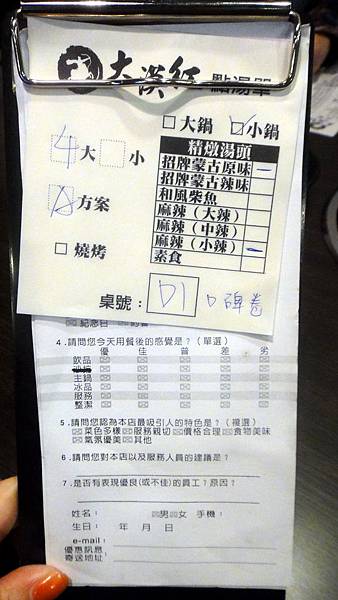 大漠紅 點湯單
□大鍋 ☑小鍋
4大 □小
A方案
□燒烤
精燉湯頭
招牌蒙古原味 —
招牌蒙古辣味
和風柴魚
麻辣（大辣）
麻辣（中辣）
麻辣（小辣） —
素食
桌號： D1 口碑卷
4.請問您今天用餐後的感覺是？（單選）
優 佳 普 差 劣
飲品
主鍋
冰品
服務
整潔
5.請問您認為本店最吸引人的特色是？（複選）
菜色多樣 服務親切 價格合理 食物美味
氣氛優美 其他
6.請問您對本店以及服務人員的建議是？
7.是否有表現優良(或不佳)的員工？原因？
姓名： 男 女 手機：
生日： 年 月 日
e-mail：
優惠訊息
寄送地址：